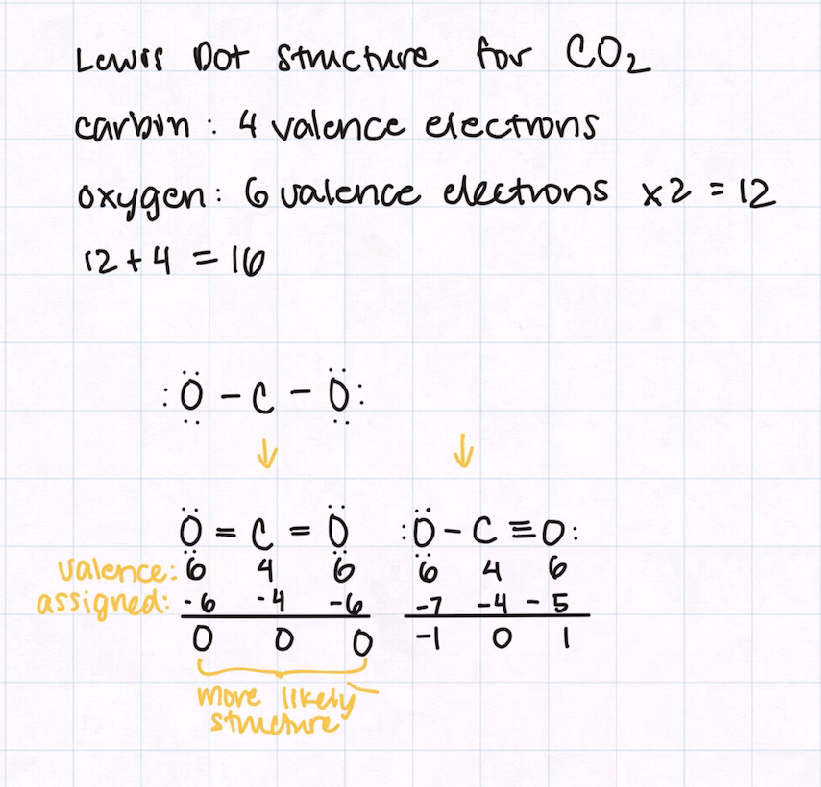 Lewis Dot Structure for CO₂
carbon : 4 valence electrons
oxygen : 6 valence electrons x2 = 12
12 + 4 = 16
:Ö̤ - C - Ö̤:
↓ ↓
Ö̤ = C = Ö̤ :Ö̤ - C ≡ O:
valence: 6 4 6 6 4 6
assigned: -6 -4 -6 -7 -4 -5
0 0 0 -1 0 1
more likely
structure